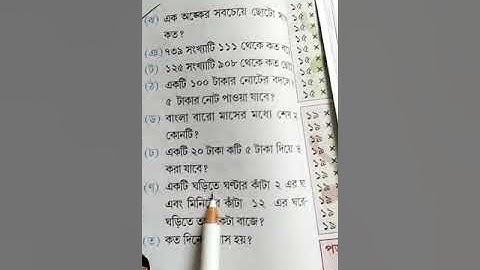 (ঝ) এক অঙ্কের সবচেয়ে ছোটো
কত?
(ঞ) ৭৩৯ সংখ্যাটি ১১১ থেকে কত
(ট) ১২৫ সংখ্যাটি ৯০৮ থেকে কত
(ঠ) একটি ১০০ টাকার নোটের বদলে
৫ টাকার নোট পাওয়া যাবে?
(ড) বাংলা বারো মাসের মধ্যে শেষ
কোনটি?
(ঢ) একটি ২০ টাকা কটি ৫ টাকা দিয়ে
করা যাবে?
(ণ) একটি ঘড়িতে ঘণ্টার কাঁটা ২ এর
এবং মিনিটের কাঁটা ১২ এর ঘরে
ঘড়িতে কটা বাজে?
(ত) কত দিনে মাস হয়?
১৫
১৫
১৫ ×
১৫ ×
১৫ ×
১৯ ×
১৯ ×
১৯ ×
১৯ ×
১৯ ×
১৯ ×
১৯ ×
১৯ ×
১৯ ×